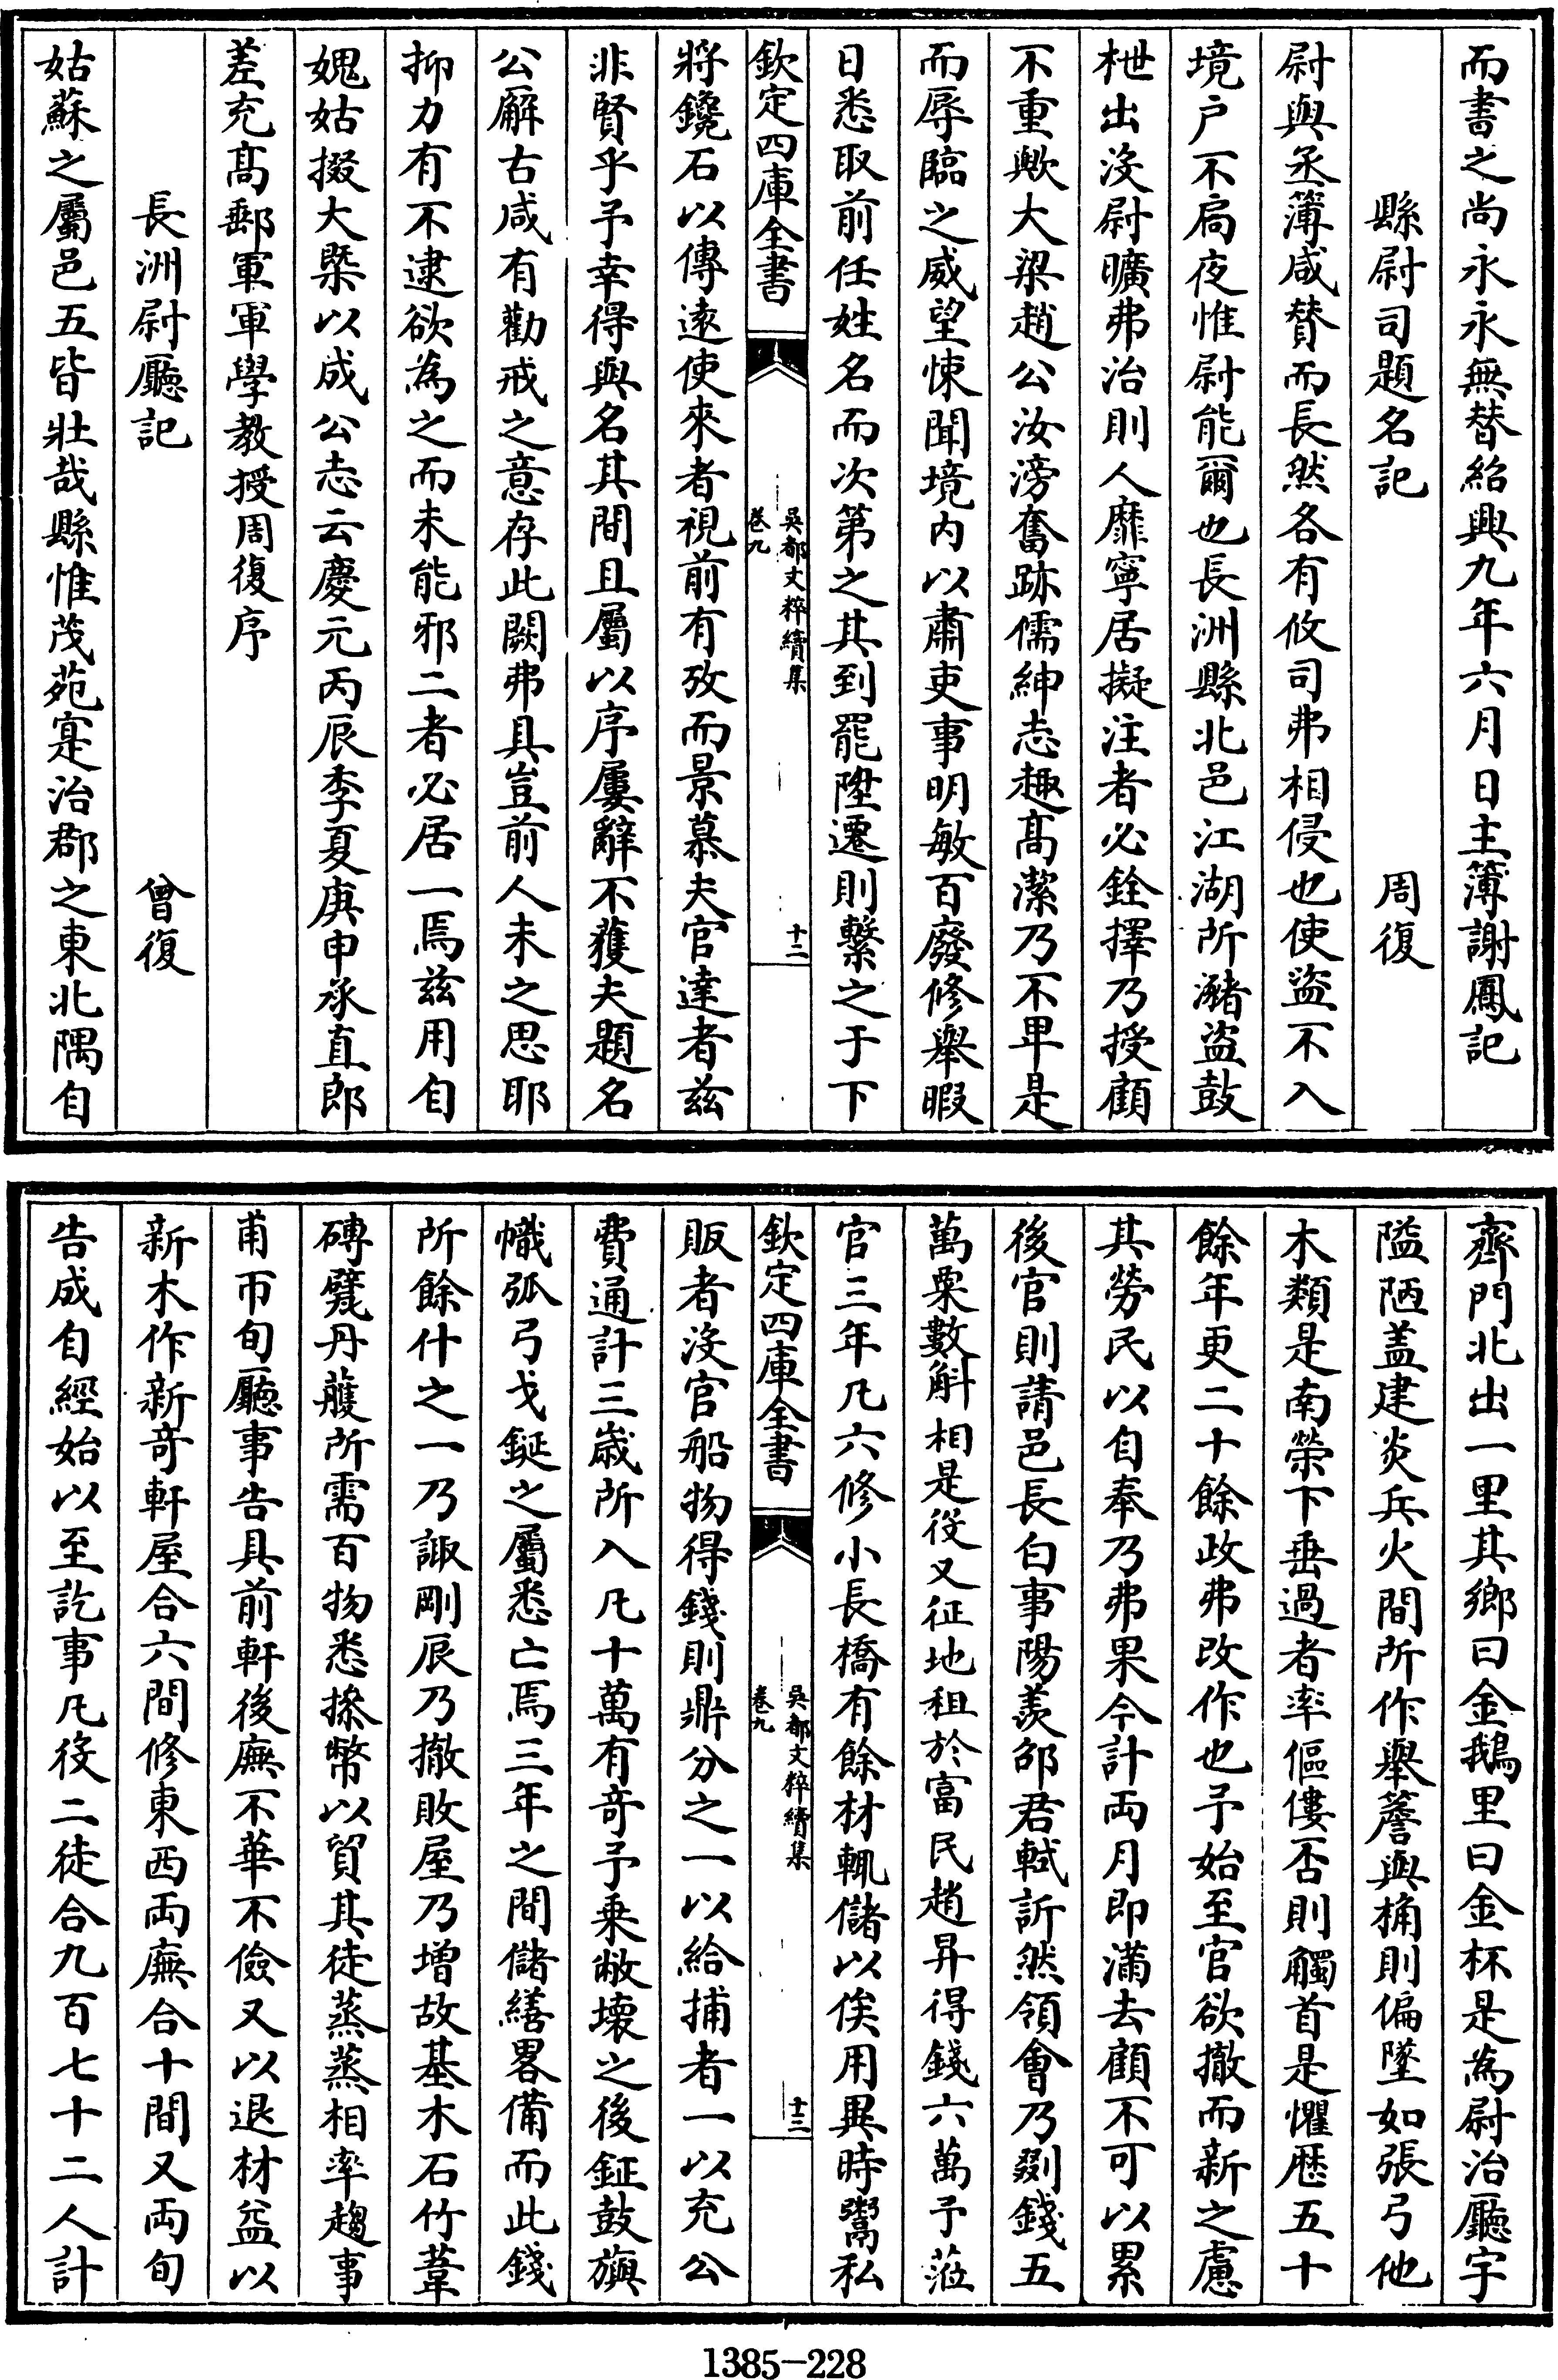 而書之尚永永無替紹興九年六月日主簿謝鳳記
縣尉司題名記　周復
尉與丞簿咸賛而長然各有攸司弗相侵也使盗不入
境戸不扃夜惟尉能爾也長洲縣北邑江湖所瀦盗鼓
枻出没尉曠弗治則人靡寧居擬注者必銓擇乃授顧
不重歟大梁趙公汝滂奮跡儒紳志趣髙潔乃不卑是
而辱臨之威望悚聞境内以肅吏事明敏百廢修舉暇
日悉取前任姓名而次第之其到罷陞遷則繫之于下
欽定四庫全書
吳都文粹續集
卷九
十二
將鑱石以傳逺使來者視前有攷而景慕夫官達者兹
非賢乎予幸得與名其間且屬以序屢辭不獲夫題名
公廨古咸有勸戒之意存此闕弗具豈前人未之思耶
抑力有不逮欲為之而未能邪二者必居一焉兹用自
媿姑掇大槩以成公志云慶元丙辰季夏庚申承直郎
差充髙郵軍軍學教授周復序
長洲尉廳記　曾復
姑蘇之屬邑五皆壯哉縣惟茂苑寔治郡之東北隅自
齊門北出一里其鄉曰金鵝里曰金杯是為尉治廳宇
隘陋盖建炎兵火間所作舉簷與桷則偏墜如張弓他
木類是南榮下垂過者率傴僂否則觸首是懼歴五十
餘年更二十餘政弗改作也予始至官欲撤而新之慮
其勞民以自奉乃弗果今計両月即滿去顧不可以累
後官則請邑長白事陽羨邵君軾訢然領會乃剟錢五
萬粟數斛相是役又征地租於富民趙昇得錢六萬予蒞
官三年凡六修小長橋有餘材輒儲以俟用異時鬻私
欽定四庫全書
吳都文粹續集
卷九
十三
販者没官船物得錢則鼎分之一以給捕者一以充公
費通計三歲所入凡十萬有竒予乗敝壊之後鉦鼓旟
幟弧弓戈鋋之屬悉亡焉三年之間儲繕畧備而此錢
所餘什之一乃諏剛辰乃撤敗屋乃增故基木石竹葦
磚甓丹雘所需百物悉捺幣以貿其徒蒸蒸相率趨事
甫帀旬廳事告具前軒後廡不華不儉又以退材益以
新木作新竒軒屋合六間修東西両廡合十間又両旬
告成自經始以至訖事凡役二徒合九百七十二人計
1385-228